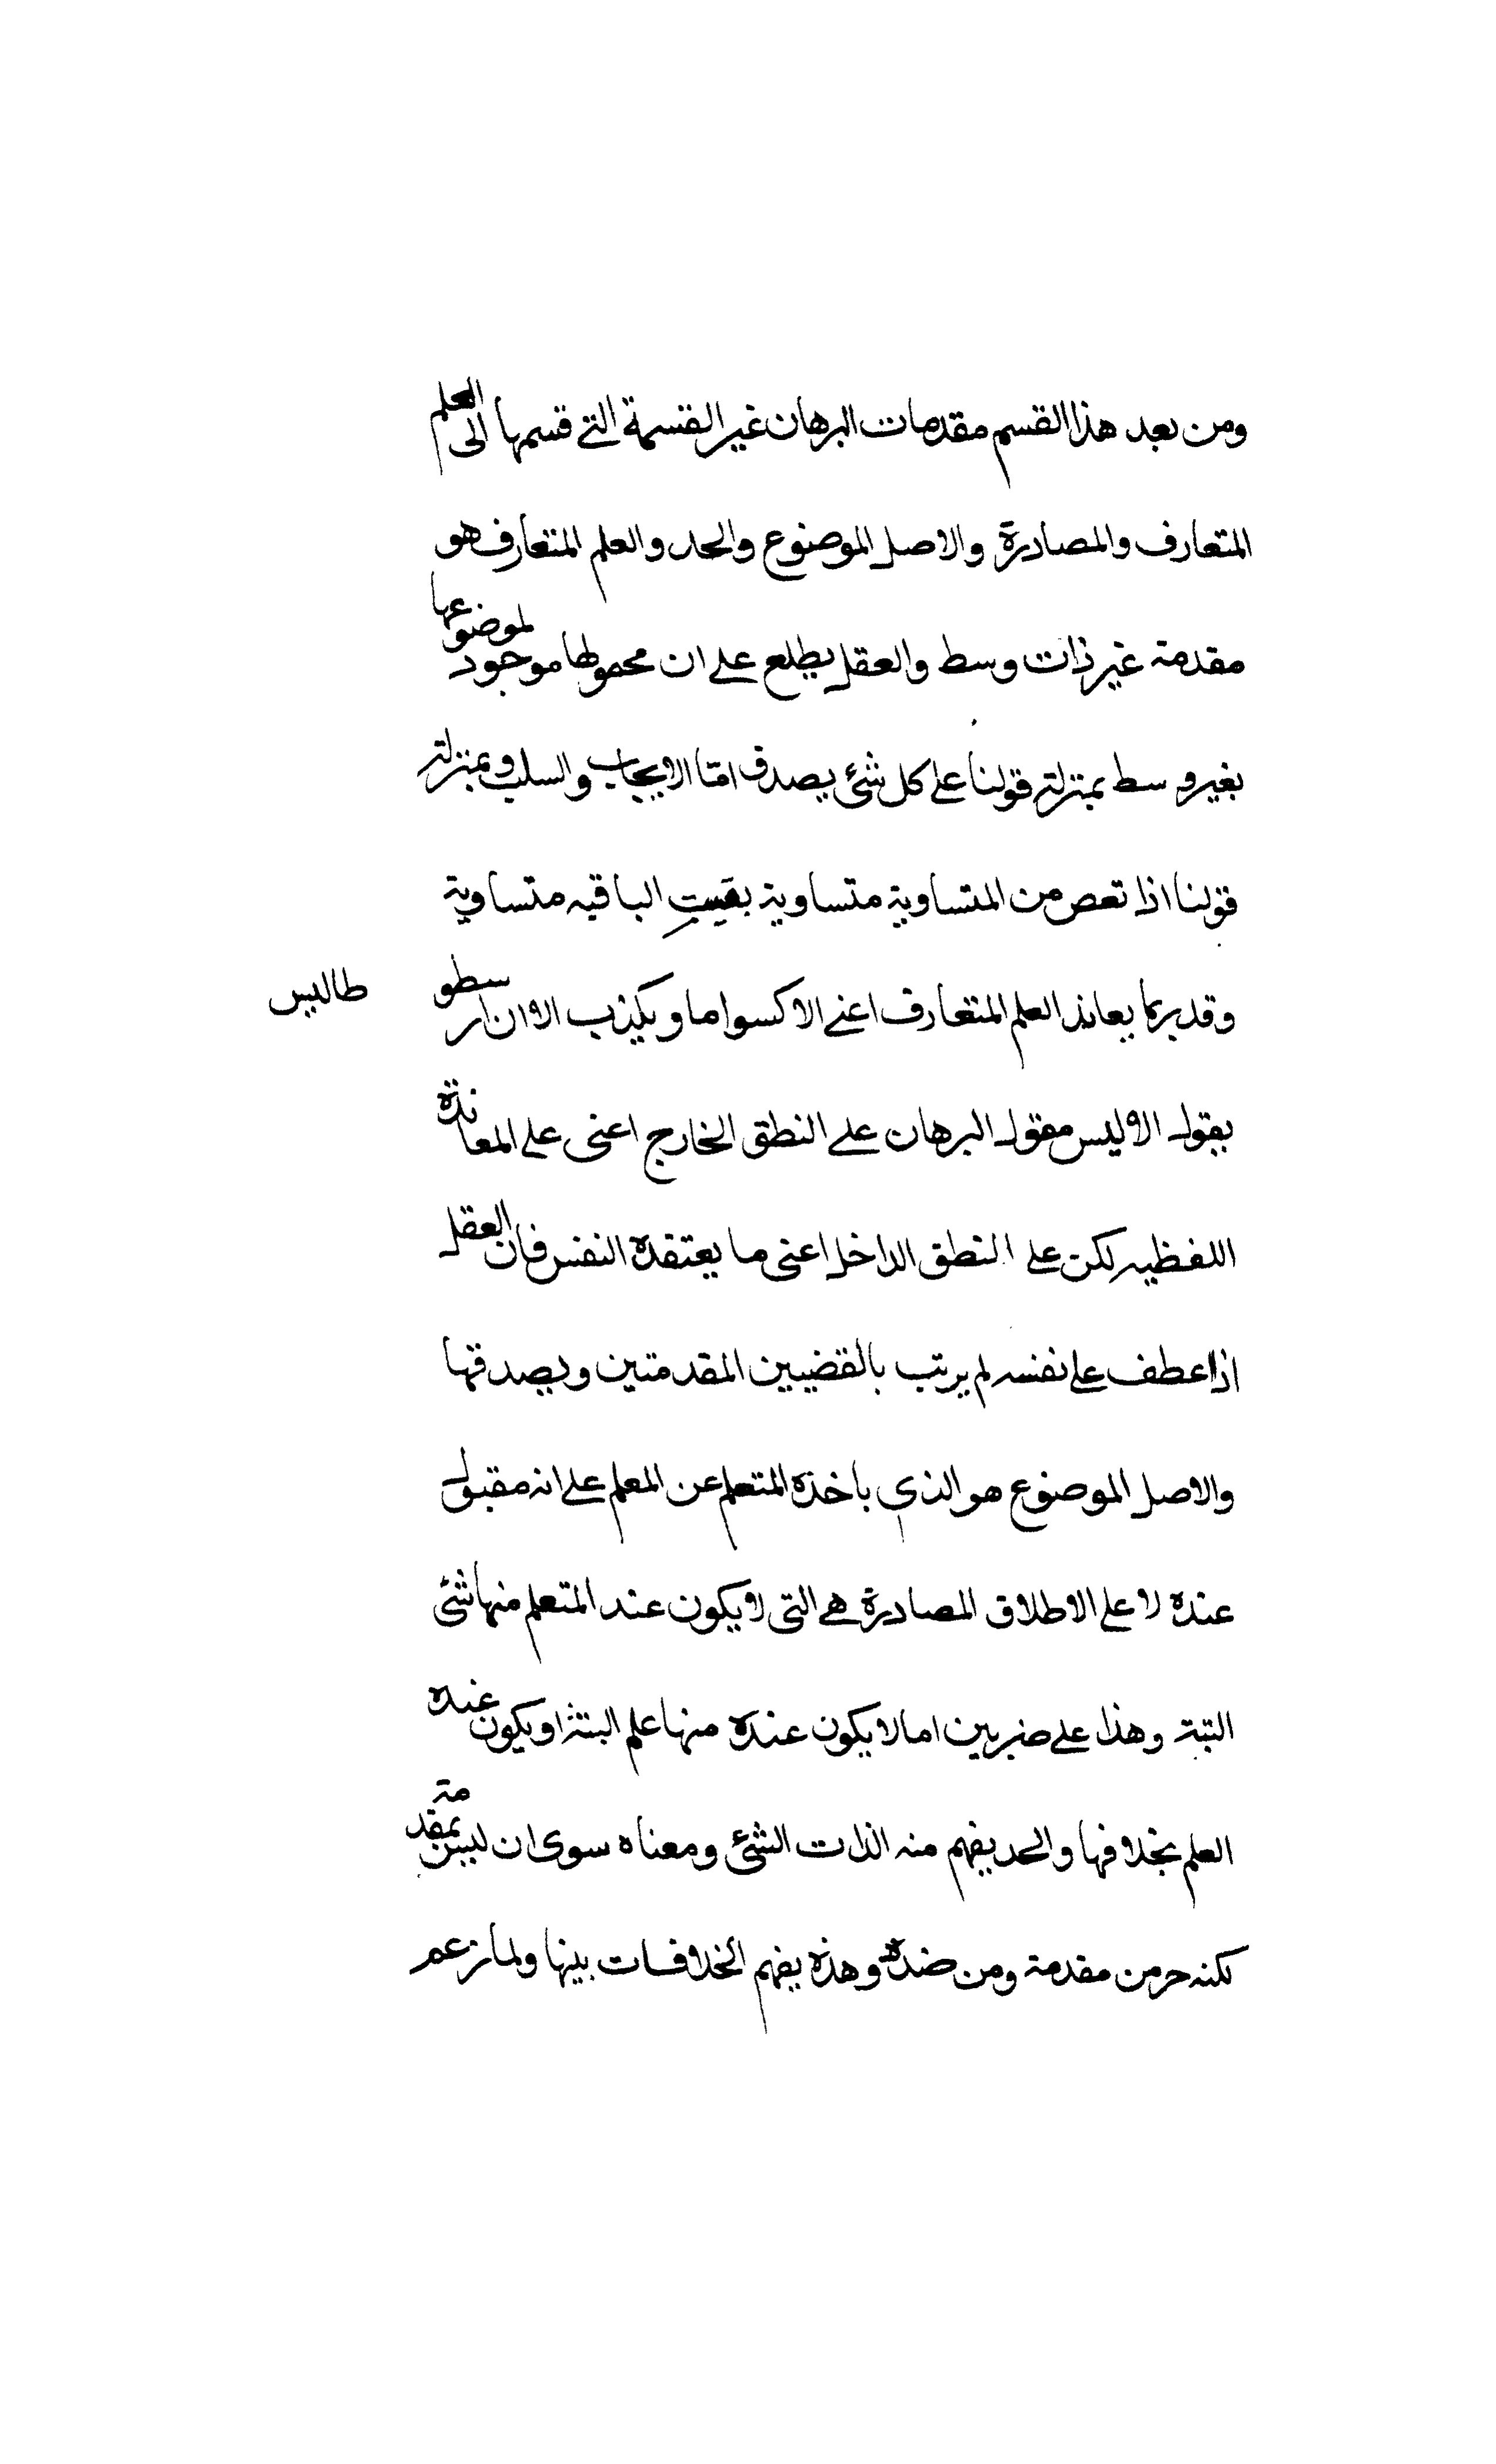 ومن بعد هذا القسم مقدمات البرهان غير القسمة التي قسمها الى العلم
المتعارف والمصادرة والاصل الموضوع والحد والعلم المتعارف هو
مقدمة غير ذات وسط والعقل يطلع على ان محمولها موجود لموضوعها
بغير وسط بمنزلة قولنا على كل شئ يصدق اما الايجاب والسلب وبمنزلة
قولنا اذا نعص من المتساوية متساوية بقيت الباقيه متساوية
وقد يربما يعاند العلم المتعارف اعني الاكسواما ويكذب الا ان ارسطو طاليس
يقول الا وليس مقول البرهان على النطق الخارج اعنى على المعاندة
اللفظيه لكن على النطق الداخل اعنى ما يعتقده النفس فان العقل
اذا عطف على نفسه لم يرتب بالقضيين المقدمتين ويصدقها
والاصل الموضوع هو الذى ياخذه المتعلم عن المعلم على انه مقبول
عنده لا على الاطلاق المصادرة هي التى لا يكون عند المتعلم منها شئ
التبة وهذا على ضربين اما لا يكون عنده منها علم البتة او يكون عنده
العلم بخلافها والحد يفهم منه الذات الشئ ومعناه سوى ان ليس بمقدمة
لكنه حر من مقدمة ومن ضده وهذه يفهم الخلافات بينها ولما زعم